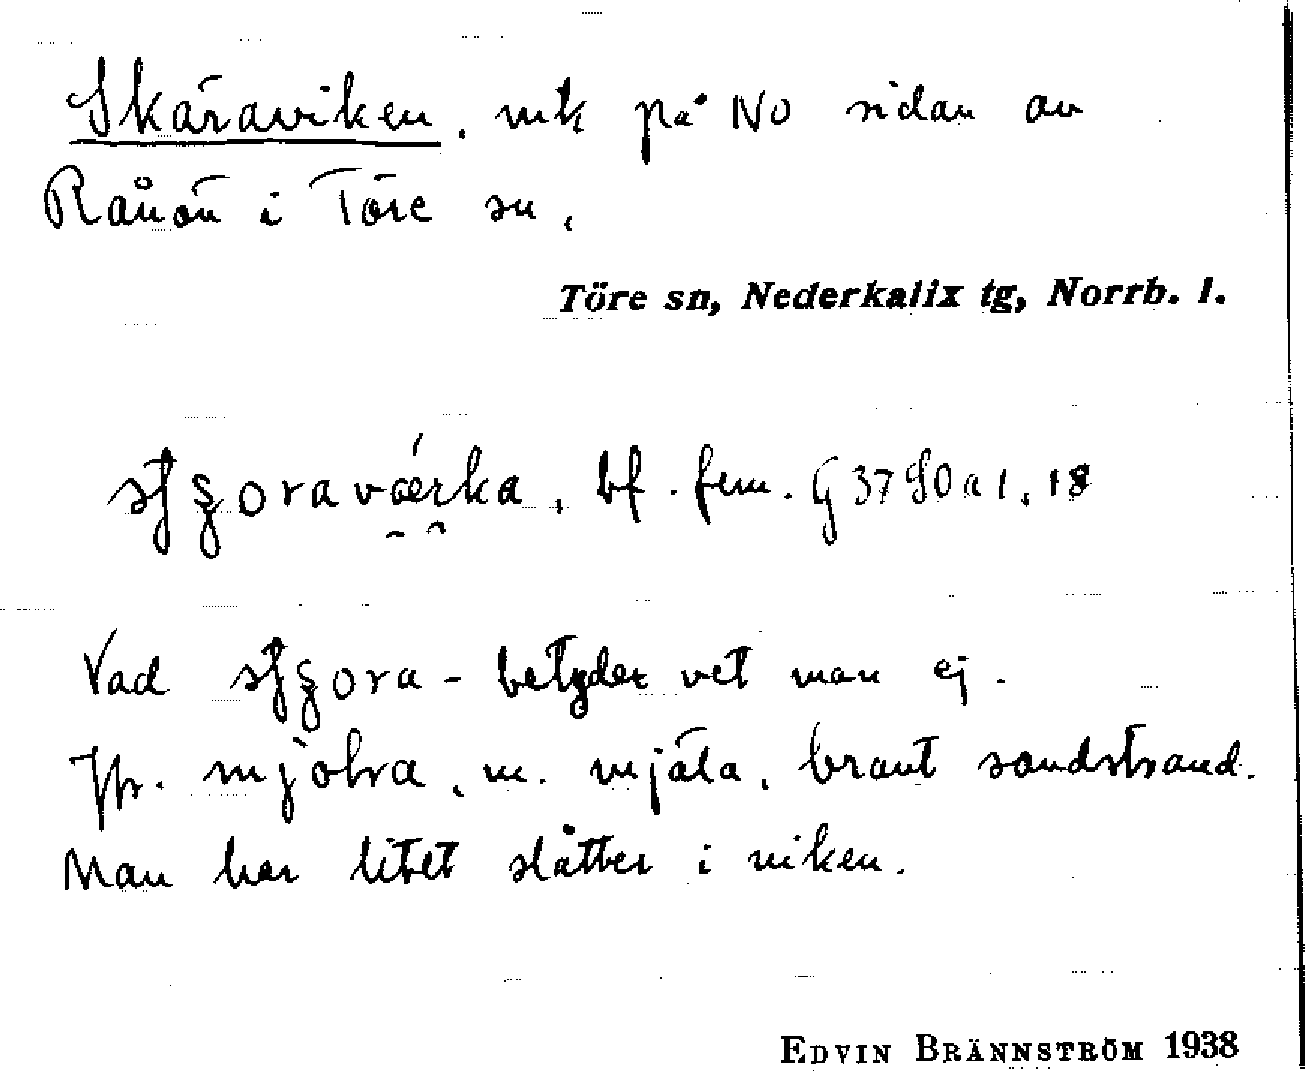 Skäraviken, vik på NO sidan av
Rånön i Töre sn.
Töre sn, Nederkalix tg, Norrb. l.
bf. fem. G 37 S0 a 1, 18
Vad betyder vet man ej.
Jfr. m. mjäla, brant sandstrand.
Man har litet slåtter i viken.
EDVIN BRÄNNSTRÖM 1938